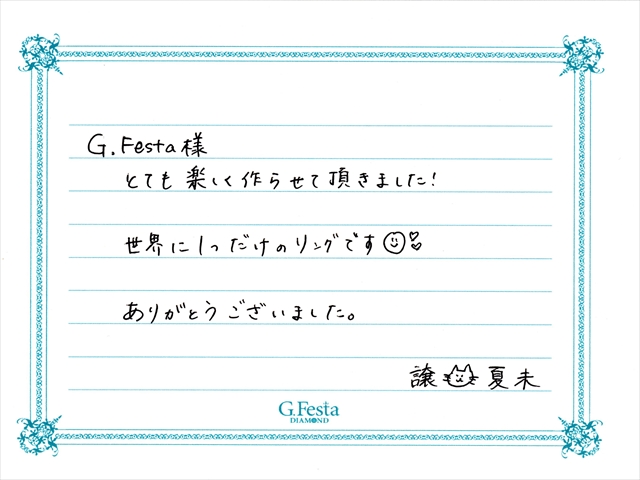 G.Festa様
とても楽しく作らせて頂きました!
世界に1つだけのリングです
ありがとうございました。
譲 夏未
G.Festa
DIAMOND